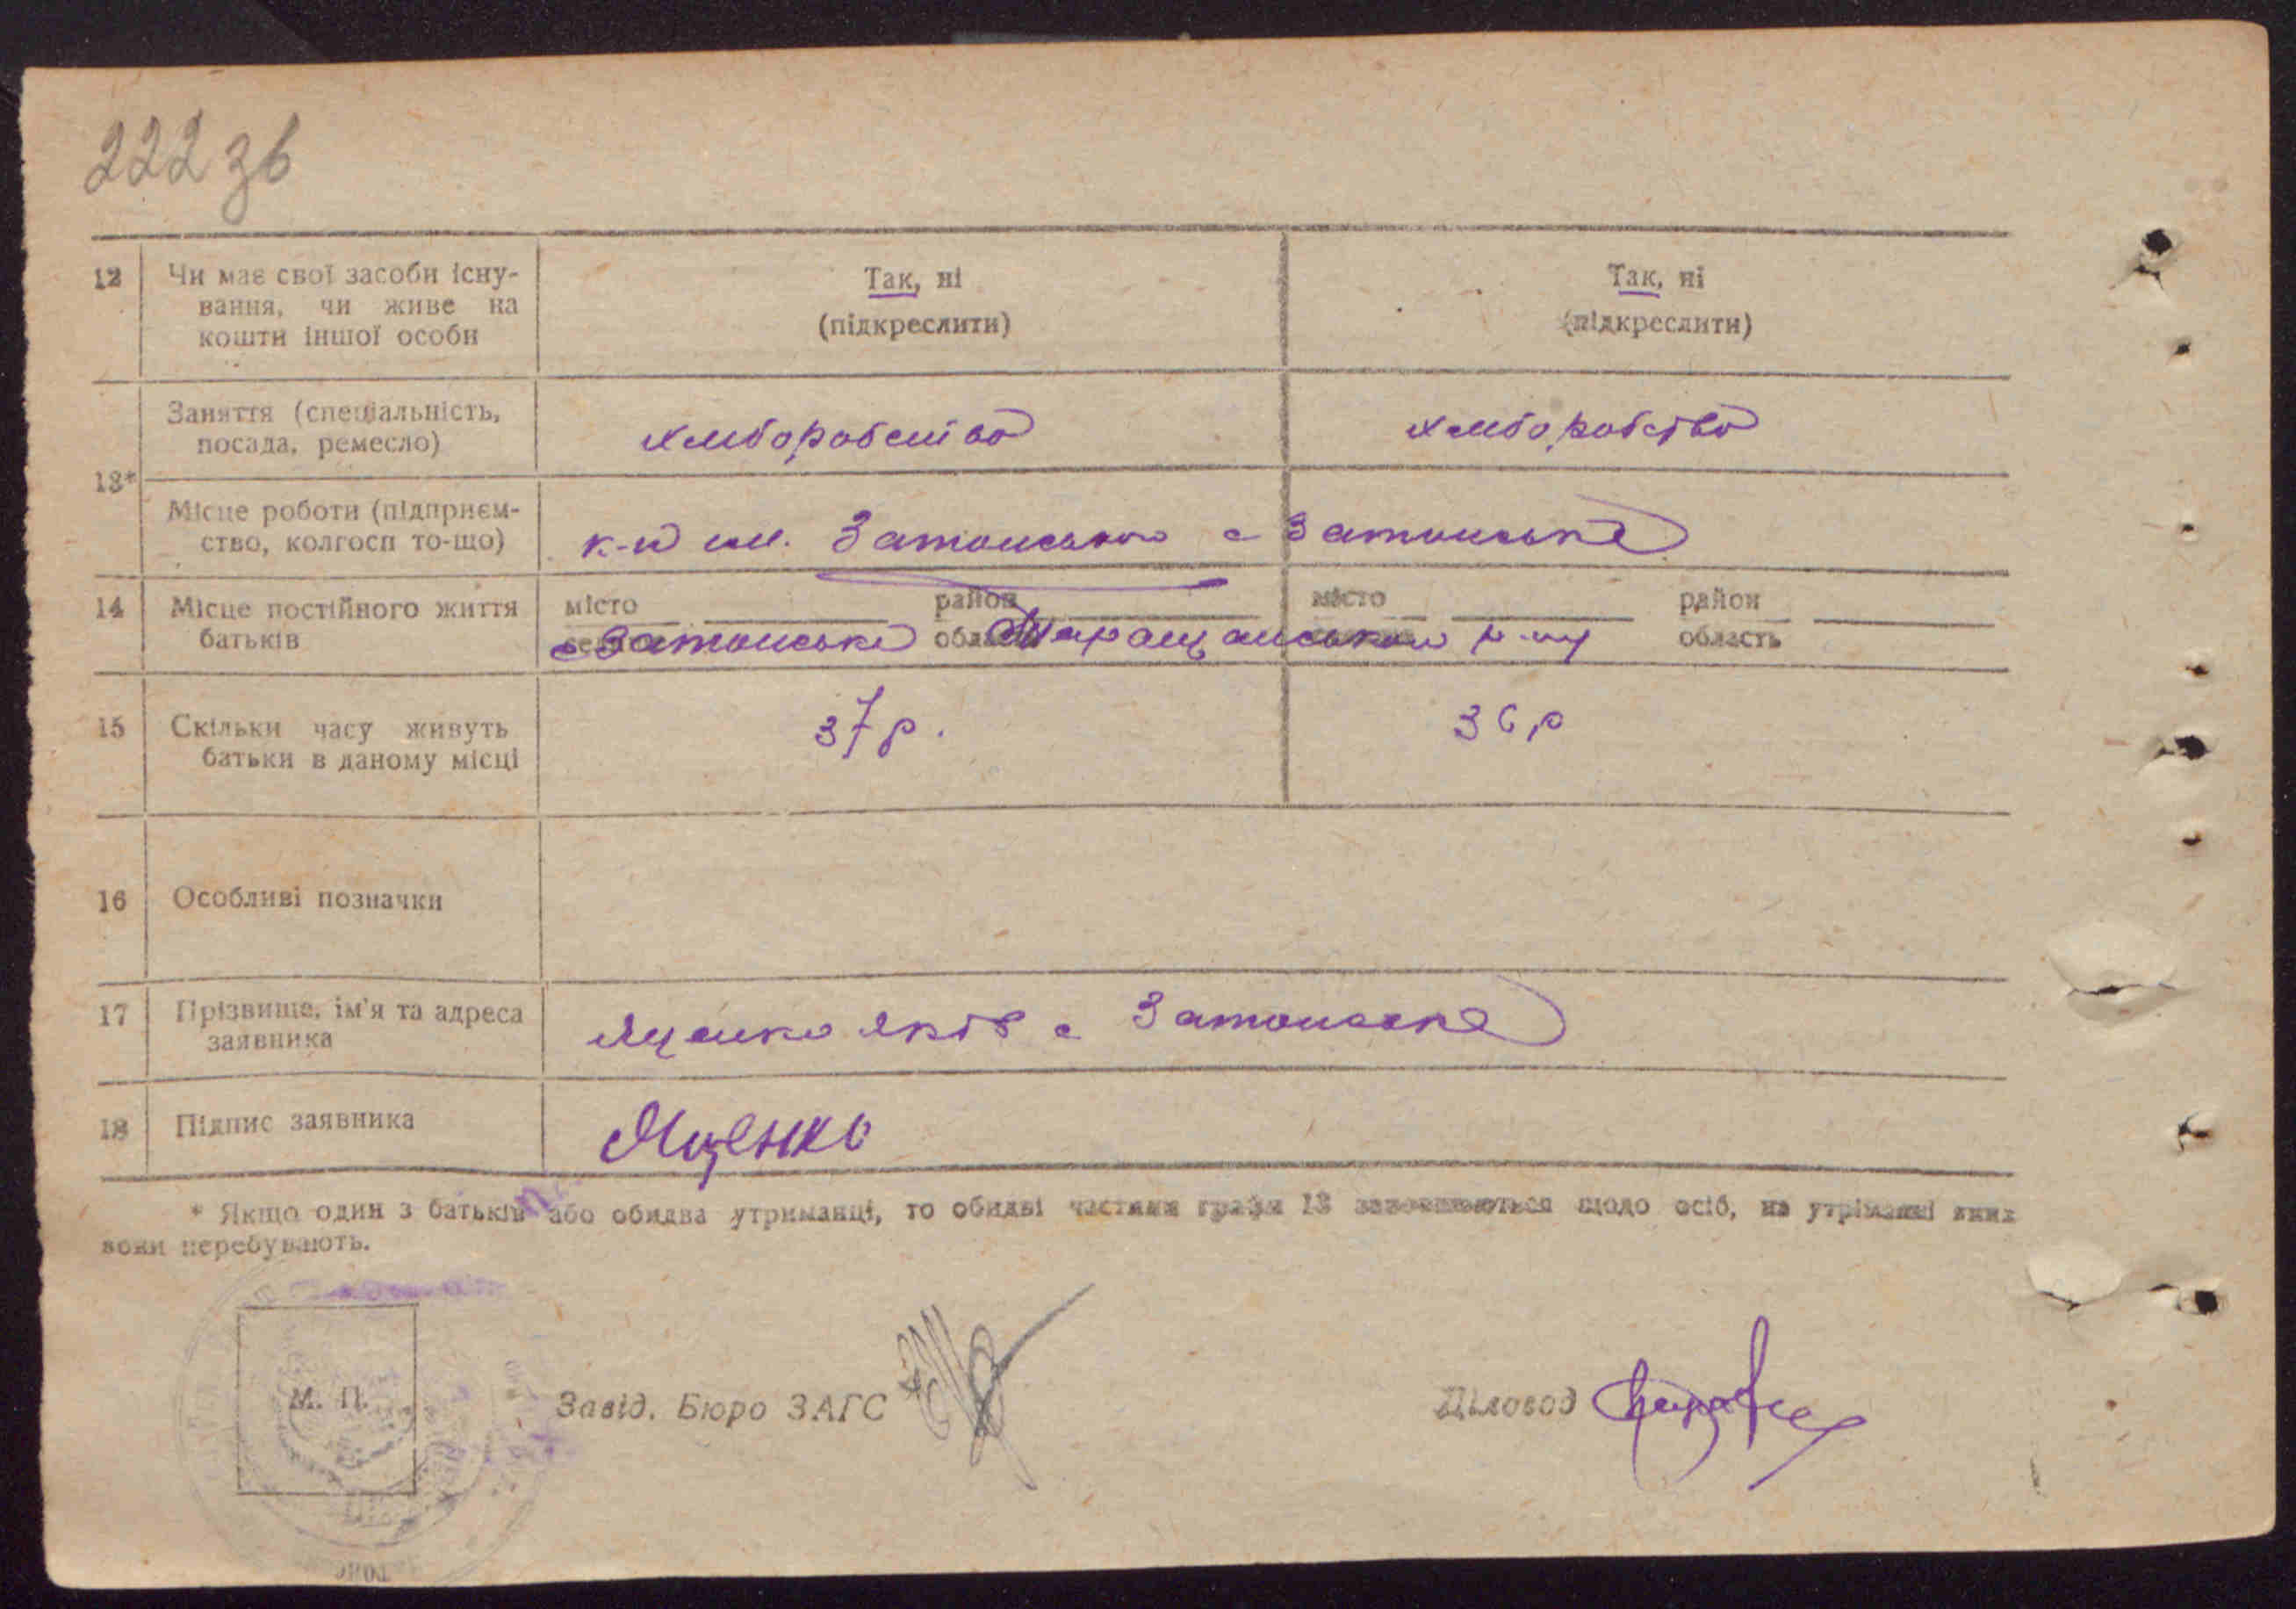 222 зв
12 Чи має свої засоби існу- Так, ні Так, ні
вання, чи живе на (підкреслити) (підкреслити)
кошти іншої особи
Заняття (спеціальність, хліборобство хліборобство
посада, ремесло)
13*
Місце роботи (підприєм- к-п ім. Затонського с Затонське
ство, колгосп то-що)
14 Місце постійного життя місто район місто район
батьків с Затонське Таращанського р-ну область
15 Скільки часу живуть 37 р. 36 р
батьки в даному місці
16 Особливі позначки
17 Прізвище, ім'я та адреса Яценко Яків с Затонське
заявника
18 Підпис заявника Яценко
* Якщо один з батьків або обидва утриманці, то обидві частини графи 13 заповнюються щодо осіб, на утріманні яких
вони перебувають.
М. П.
Завід. Бюро ЗАГС Діловод